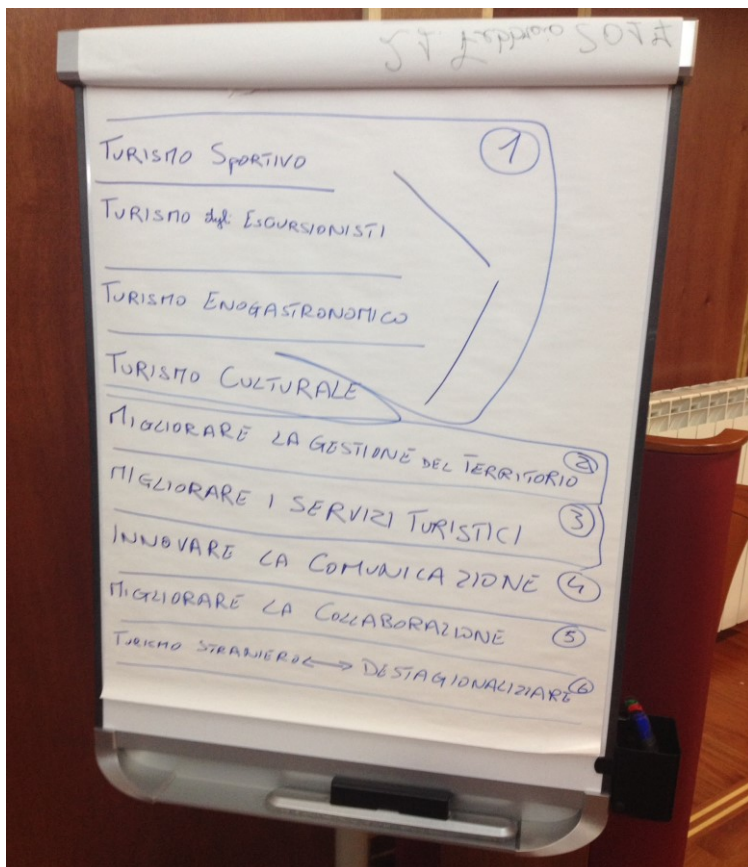 SOTA
1
TURISMO SPORTIVO
TURISMO degli ESCURSIONISTI
TURISMO ENOGASTRONOMICO
TURISMO CULTURALE
MIGLIORARE LA GESTIONE DEL TERRITORIO 2
MIGLIORARE I SERVIZI TURISTICI 3
INNOVARE LA COMUNICAZIONE 4
MIGLIORARE LA COLLABORAZIONE 5
TURISMO STRANIERO ↔ DESTAGIONALIZZARE 6